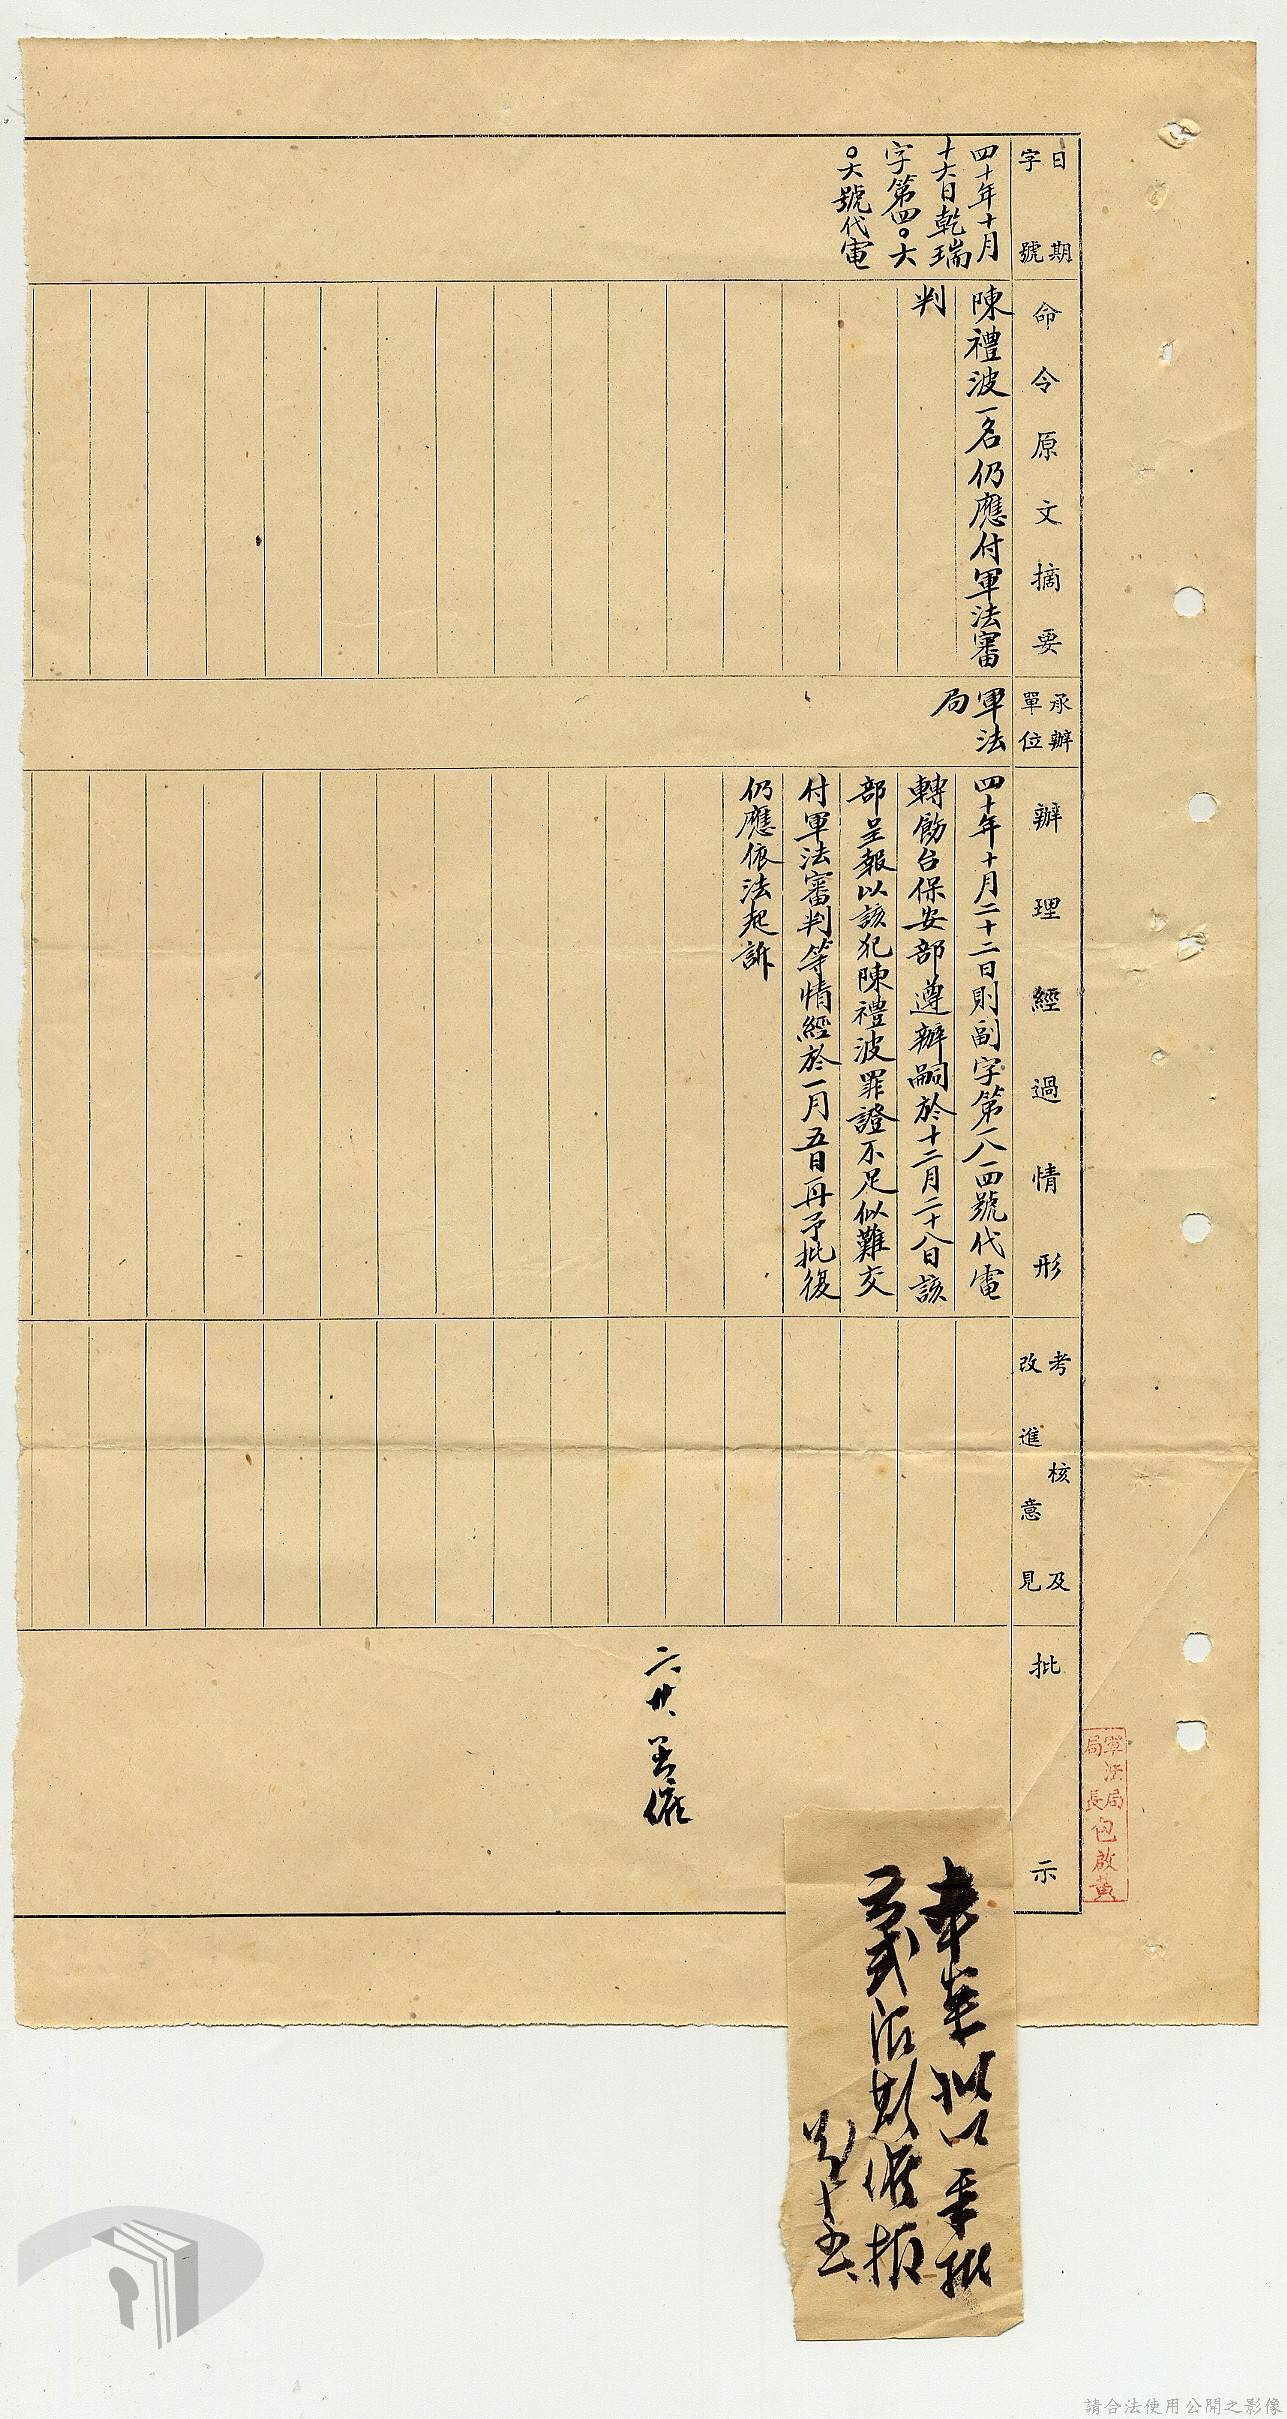 日期
字號
四十年十月
十六日乾瑞
字第四〇六
〇六號代電
命令原文摘要
陳禮波一名仍應付軍法審
判
承辦
單位
軍法
局
辦理經過情形
四十年十月二十二日則副字第一八一四號代電
轉飭台保安部遵辦嗣於十二月二十八日該
部呈報以該犯陳禮波罪證不足似難交
付軍法審判等情經於一月五日再予批復
仍應依法起訴
考核及
改進意見
批示
二、廿、
催
軍法局
局長包啟黃
本案擬以奉批
式
催報
請合法使用公開之影像